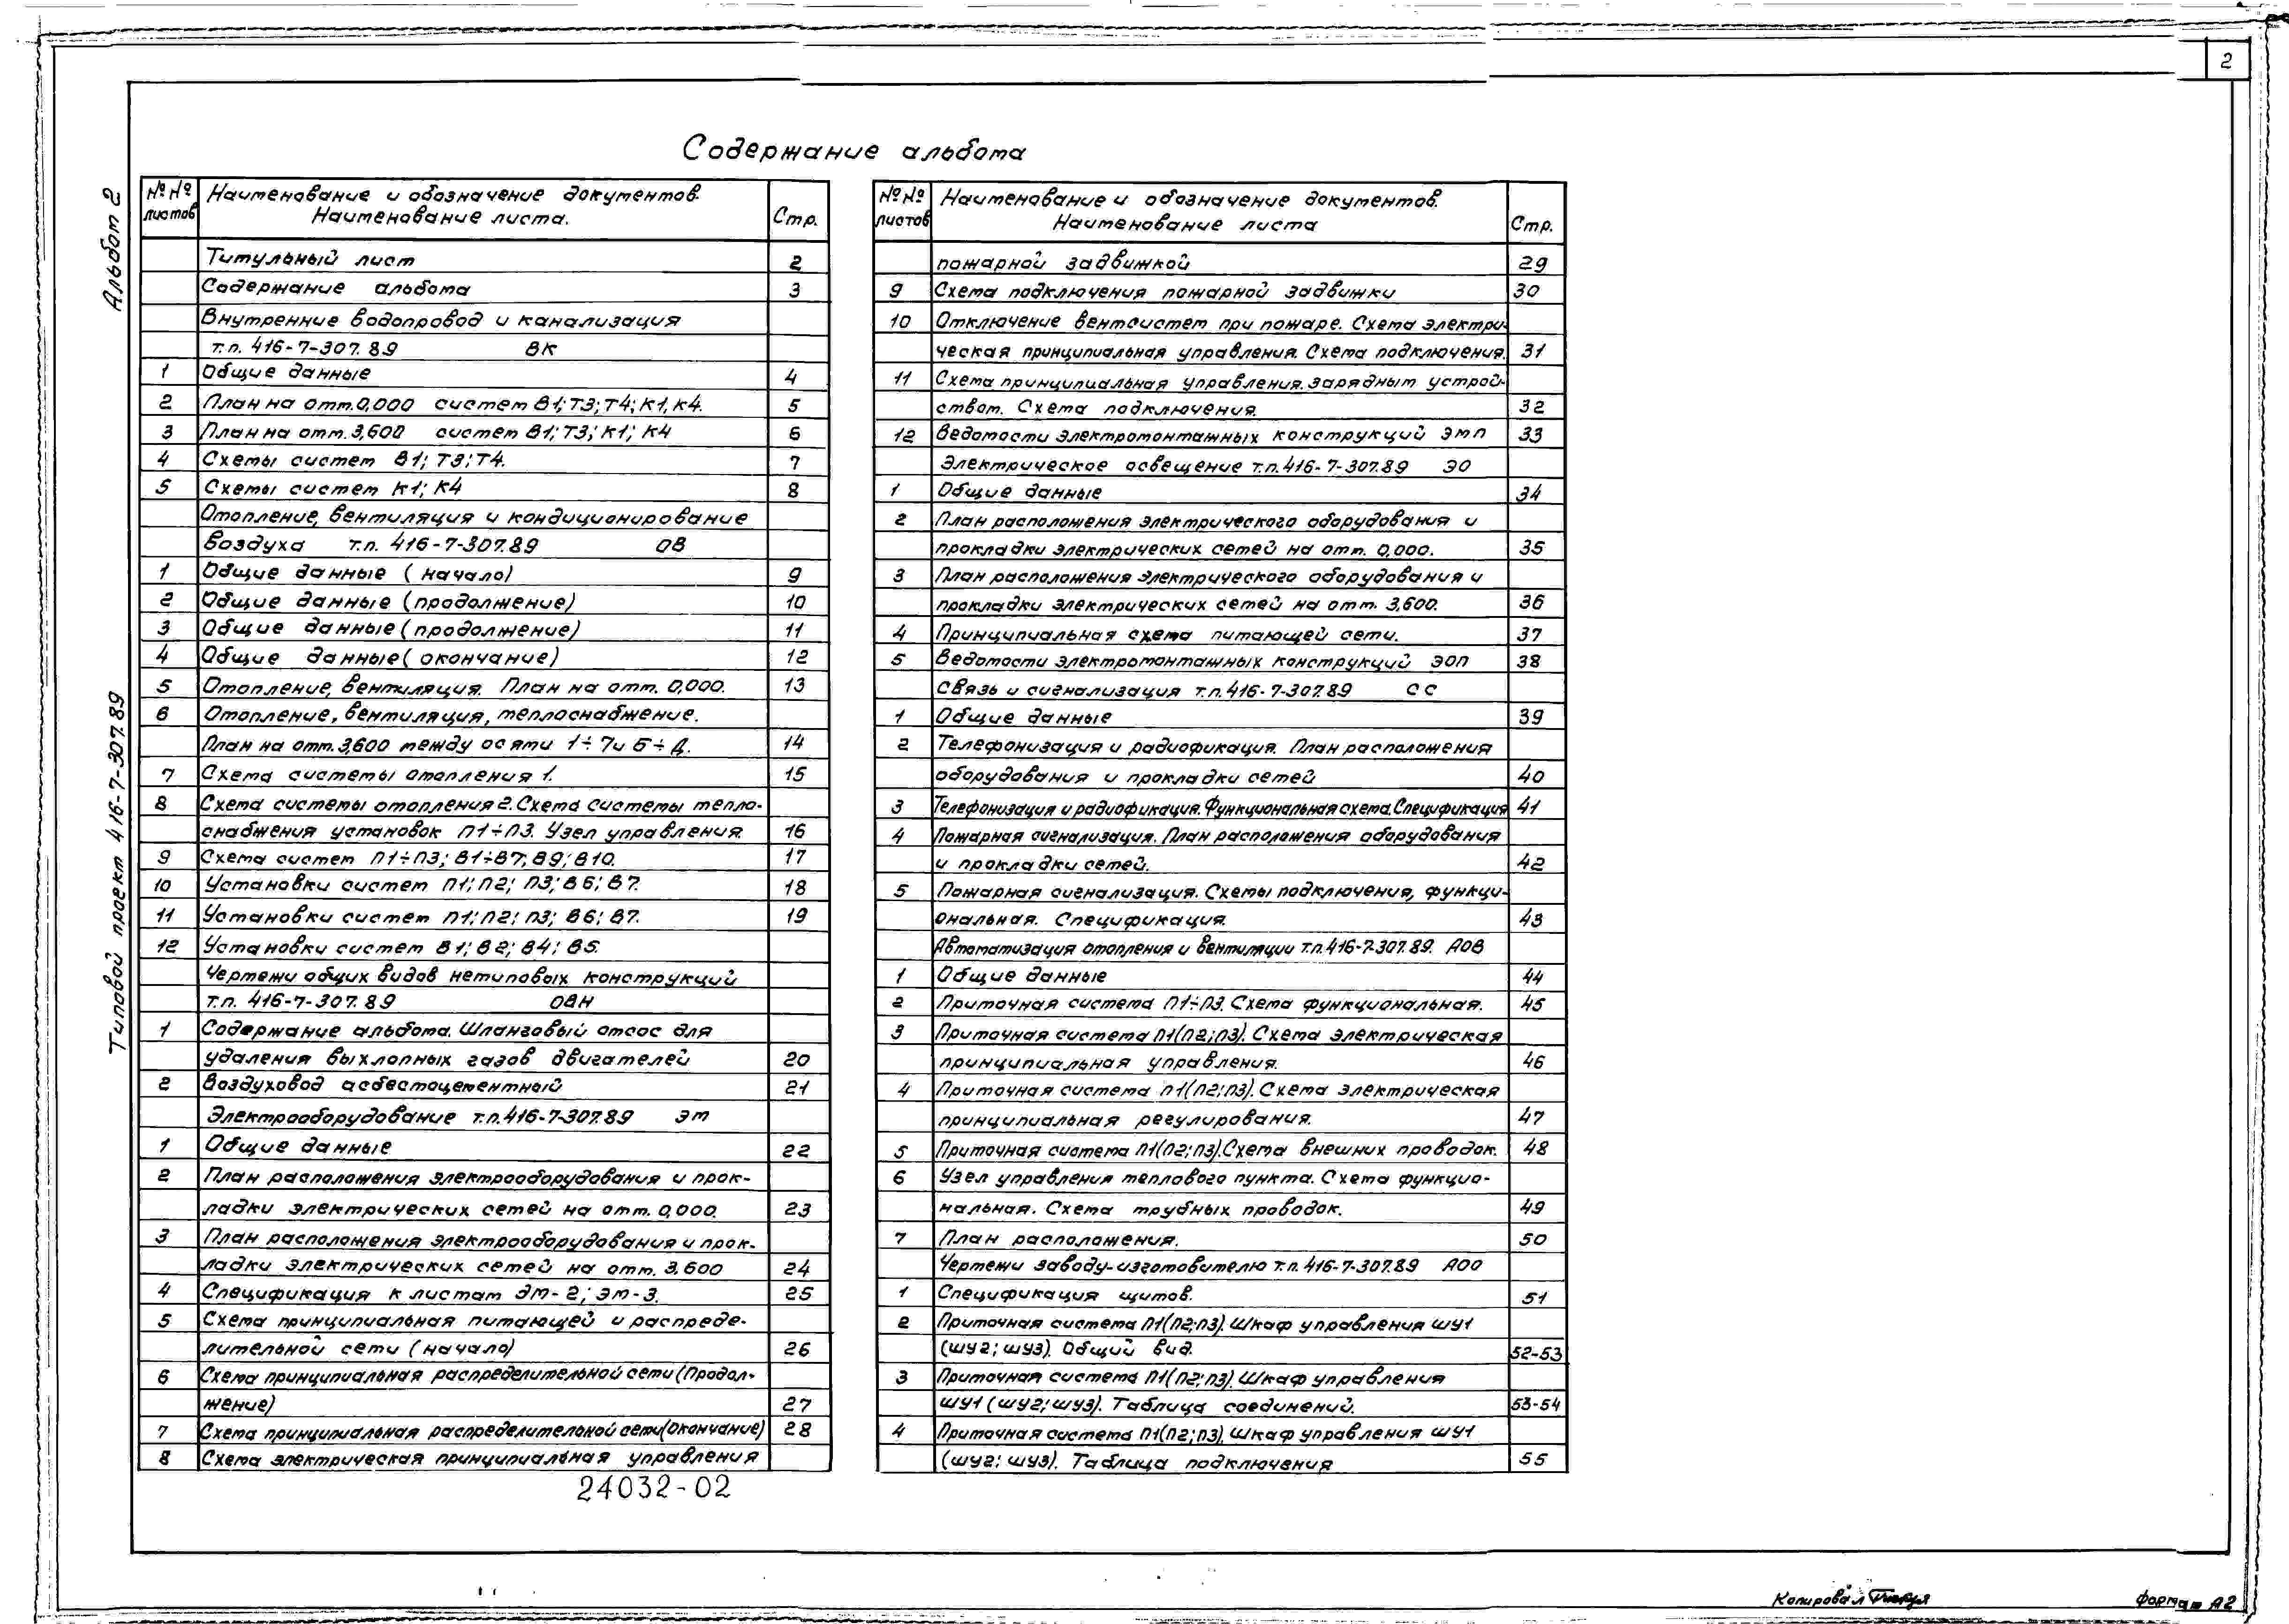 2
Содержание альбома
Альбом 2
Типовой проект 416-7-307.89
№№ листов
Наименование и обозначение документов.
Наименование листа.
Стр.
Титульный лист 2
Содержание альбома 3
Внутренние водопровод и канализация
т.п. 416-7-307.89 ВК
1 Общие данные 4
2 План на отм. 0,000 систем В1; Т3; Т4; К1, К4. 5
3 План на отм. 3,600 систем В1; Т3; К1; К4 6
4 Схемы систем В1; Т3; Т4. 7
5 Схемы систем К1; К4 8
Отопление, вентиляция и кондиционирование
воздуха т.п. 416-7-307.89 ОВ
1 Общие данные (начало) 9
2 Общие данные (продолжение) 10
3 Общие данные (продолжение) 11
4 Общие данные (окончание) 12
5 Отопление, вентиляция. План на отм. 0,000. 13
6 Отопление, вентиляция, теплоснабжение.
План на отм. 3,600 между осями 1÷7 и Б÷Д. 14
7 Схема системы отопления 1. 15
8 Схема системы отопления 2. Схема системы тепло-
снабжения установок П1÷П3. Узел управления. 16
9 Схема систем П1÷П3; В1÷В7; В9; В10. 17
10 Установки систем П1; П2; П3; В6; В7. 18
11 Установки систем П1; П2; П3; В6; В7. 19
12 Установки систем В1; В2; В4; В5.
Чертежи общих видов нетиповых конструкций
т.п. 416-7-307.89 ОВН
1 Содержание альбома. Шланговый отсос для
удаления выхлопных газов двигателей 20
2 Воздуховод асбестоцементный 21
Электрооборудование т.п. 416-7-307.89 ЭМ
1 Общие данные 22
2 План расположения электрооборудования и прок-
ладки электрических сетей на отм. 0,000. 23
3 План расположения электрооборудования и прок-
ладки электрических сетей на отм. 3,600 24
4 Спецификация к листам ЭМ-2; ЭМ-3. 25
5 Схема принципиальная питающей и распреде-
лительной сети (начало) 26
6 Схема принципиальная распределительной сети (Продол-
жение) 27
7 Схема принципиальная распределительной сети (Окончание) 28
8 Схема электрическая принципиальная управления
24032-02
№№ листов
Наименование и обозначение документов.
Наименование листа
Стр.
пожарной задвижкой 29
9 Схема подключения пожарной задвижки 30
10 Отключение вентсистем при пожаре. Схема электри-
ческая принципиальная управления. Схема подключения. 31
11 Схема принципиальная управления зарядным устрой-
ством. Схема подключения. 32
12 Ведомости электромонтажных конструкций ЭМП 33
Электрическое освещение т.п. 416-7-307.89 ЭО
1 Общие данные 34
2 План расположения электрического оборудования и
прокладки электрических сетей на отм. 0,000. 35
3 План расположения электрического оборудования и
прокладки электрических сетей на отм. 3,600. 36
4 Принципиальная схема питающей сети. 37
5 Ведомости электромонтажных конструкций ЭОП 38
Связь и сигнализация т.п. 416-7-307.89 СС
1 Общие данные 39
2 Телефонизация и радиофикация. План расположения
оборудования и прокладки сетей 40
3 Телефонизация и радиофикация. Функциональная схема. Спецификация 41
4 Пожарная сигнализация. План расположения оборудования
и прокладки сетей. 42
5 Пожарная сигнализация. Схемы подключения, функци-
ональная. Спецификация. 43
Автоматизация отопления и вентиляции т.п. 416-7-307.89. АОВ
1 Общие данные 44
2 Приточная система П1÷П3. Схема функциональная. 45
3 Приточная система П1(П2;П3). Схема электрическая
принципиальная управления. 46
4 Приточная система П1(П2;П3). Схема электрическая
принципиальная регулирования. 47
5 Приточная система П1(П2;П3). Схема внешних проводок. 48
6 Узел управления теплового пункта. Схема функцио-
нальная. Схема трубных проводок. 49
7 План расположения. 50
Чертежи заводу-изготовителю т.п. 416-7-307.89 АОО
1 Спецификация щитов. 51
2 Приточная система П1(П2;П3). Шкаф управления ШУ1
(ШУ2; ШУ3). Общий вид. 52-53
3 Приточная система П1(П2;П3). Шкаф управления
ШУ1 (ШУ2; ШУ3). Таблица соединений. 53-54
4 Приточная система П1(П2;П3). Шкаф управления ШУ1
(ШУ2; ШУ3). Таблица подключения 55
Копировал
Формат А2